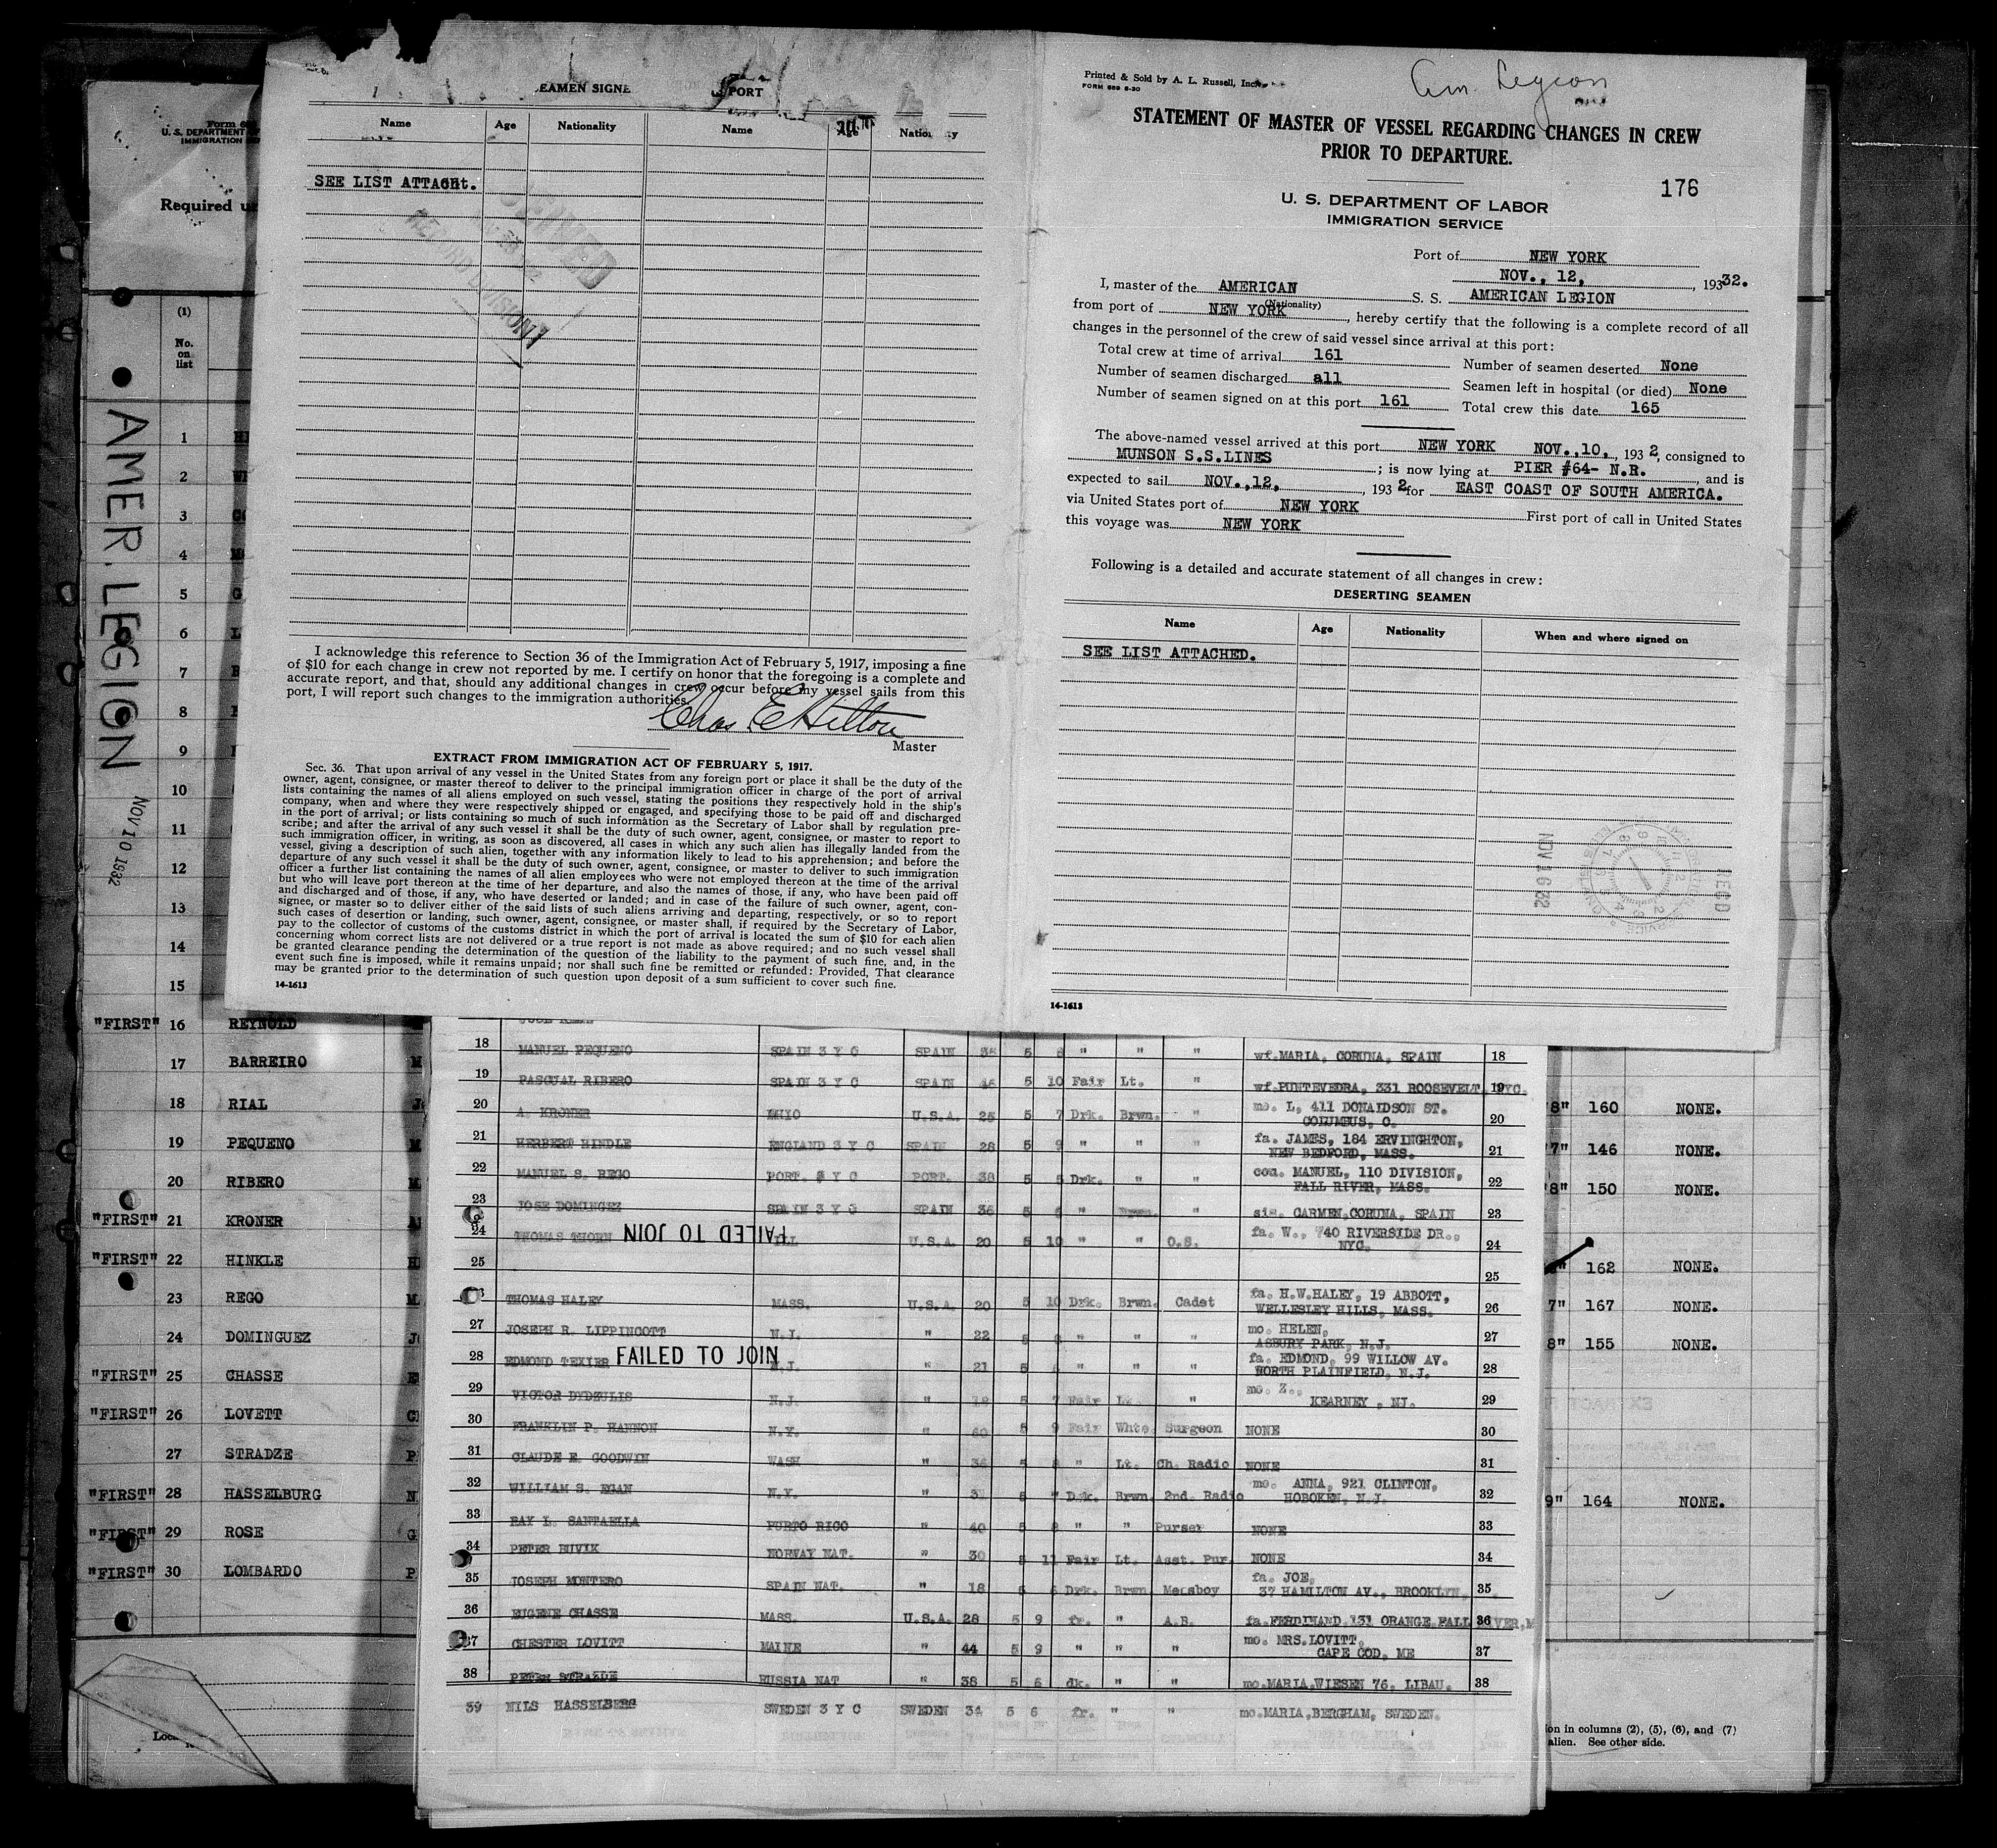 EAMEN SIGNE PORT
Name Age Nationality Name Age
SEE LIST ATTACHt.
RECORD DIVISION
I acknowledge this reference to Section 36 of the Immigration Act of February 5, 1917, imposing a fine
of $10 for each change in crew not reported by me. I certify on honor that the foregoing is a complete and
accurate report, and that, should any additional changes in crew occur before my vessel sails from this
port, I will report such changes to the immigration authorities.
Chas E Hilton
Master
EXTRACT FROM IMMIGRATION ACT OF FEBRUARY 5, 1917.
Sec. 36. That upon arrival of any vessel in the United States from any foreign port or place it shall be the duty of the
owner, agent, consignee, or master thereof to deliver to the principal immigration officer in charge of the port of arrival
lists containing the names of all aliens employed on such vessel, stating the positions they respectively hold in the ship's
company, when and where they were respectively shipped or engaged, and specifying those to be paid off and discharged
in the port of arrival; or lists containing so much of such information as the Secretary of Labor shall by regulation pre-
scribe; and after the arrival of any such vessel it shall be the duty of such owner, agent, consignee, or master to report to
such immigration officer, in writing, as soon as discovered, all cases in which any such alien has illegally landed from the
vessel, giving a description of such alien, together with any information likely to lead to his apprehension; and before the
departure of any such vessel it shall be the duty of such owner, agent, consignee, or master to deliver to such immigration
officer a further list containing the names of all alien employees who were not employed thereon at the time of the arrival
but who will leave port thereon at the time of her departure, and also the names of those, if any, who have been paid off
and discharged and of those, if any, who have deserted or landed; and in case of the failure of such owner, agent, con-
signee, or master so to deliver either of the said lists of such aliens arriving and departing, respectively, or so to report
such cases of desertion or landing, such owner, agent, consignee, or master shall, if required by the Secretary of Labor,
pay to the collector of customs of the customs district in which the port of arrival is located the sum of $10 for each alien
concerning whom correct lists are not delivered or a true report is not made as above required; and no such vessel shall
be granted clearance pending the determination of the question of the liability to the payment of such fine, and, in the
event such fine is imposed, while it remains unpaid; nor shall such fine be remitted or refunded: Provided, That clearance
may be granted prior to the determination of such question upon deposit of a sum sufficient to cover such fine.
14-1613
Printed & Sold by A. L. Russell, Inc.
FORM 689 5-30
Am. Legion
STATEMENT OF MASTER OF VESSEL REGARDING CHANGES IN CREW
PRIOR TO DEPARTURE.
176
U. S. DEPARTMENT OF LABOR
IMMIGRATION SERVICE
Port of NEW YORK
NOV., 12, , 1932.
I, master of the AMERICAN S. S. AMERICAN LEGION
(Nationality)
from port of NEW YORK , hereby certify that the following is a complete record of all
changes in the personnel of the crew of said vessel since arrival at this port:
Total crew at time of arrival 161 Number of seamen deserted None
Number of seamen discharged all Seamen left in hospital (or died) None
Number of seamen signed on at this port 161 Total crew this date 165
The above-named vessel arrived at this port NEW YORK NOV.,10, , 1932, consigned to
MUNSON S.S.LINES ; is now lying at PIER #64- N.R. , and is
expected to sail NOV.,12, , 1932 for EAST COAST OF SOUTH AMERICA.
via United States port of NEW YORK First port of call in United States
this voyage was NEW YORK
Following is a detailed and accurate statement of all changes in crew:
DESERTING SEAMEN
Name Age Nationality When and where signed on
SEE LIST ATTACHED.
NOV 16 32
RECD
14-1613
U. S. DEPARTMENT
IMMIGRATION
Required
(1)
No.
on
list
AMER. LEGION
NOV 10 1932
1
2
3
4
5
6
7
8
9
10
11
12
13
14
15
"FIRST" 16 REYNOLD
17 BARREIRO
18 RIAL 160 NONE.
19 PEQUENO 146 NONE.
20 RIBERO 150 NONE.
"FIRST" 21 KRONER
"FIRST" 22 HINKLE 162 NONE.
23 REGO 167 NONE.
24 DOMINGUEZ 155 NONE.
"FIRST" 25 CHASSE
"FIRST" 26 LOVETT
27 STRADZE
"FIRST" 28 HASSELBURG 164 NONE.
"FIRST" 29 ROSE
"FIRST" 30 LOMBARDO
18 MANUEL PEQUENO SPAIN 3 Y C SPAIN 38 5 6 " " " wf.MARIA, CORUNA, SPAIN 18
19 PASCUAL RIBERO SPAIN 3 Y C SPAIN 45 5 10 Fair Lt. " wf.PUNTEVEDRA, 331 ROOSEVELT, NYC. 19
20 A. KRONER OHIO U.S.A. 25 5 7 Drk. Brwn. " mo. L, 411 DONALDSON ST.
COLUMBUS, O. 20
21 HERBERT HINDLE ENGLAND 3 Y C SPAIN 28 5 9 " " " fa. JAMES, 184 ERVINGHTON,
NEW BEDFORD, MASS. 21
22 MANUEL S. REGO PORT. 3 Y C PORT. 38 5 5 Drk. " " cou. MANUEL, 110 DIVISION,
FALL RIVER, MASS. 22
23 JOSE DOMINGEZ SPAIN 3 Y C SPAIN 36 5 6 " Brwn. " sis. CARMEN,CORUNA, SPAIN 23
24 THOMAS THORN FAILED TO JOIN U.S.A. 20 5 10 " " O.S. fa. W., 740 RIVERSIDE DR.,
NYC. 24
25 25
THOMAS HALEY MASS. U.S.A. 20 5 10 Drk. Brwn. Cadet fa. H.W.HALEY, 19 ABBOTT,
WELLESLEY HILLS, MASS. 26
27 JOSEPH R. LIPPINCOTT N.J. " 22 5 " " " mo. HELEN,
ASBURY PARK, N.J. 27
28 EDMOND TEXIER FAILED TO JOIN " 21 5 " " " fa. EDMOND, 99 WILLOW AV.
NORTH PLAINFIELD, N.J. 28
29 VICTOR DYDZULIS N.J. " 18 5 7 Fair Lt. " mo. Z.,
KEARNEY , NJ. 29
30 FRANKLIN P. HANNON N.Y. " 60 5 9 Fair Whte Surgeon NONE 30
31 CLAUDE E. GOODWIN WASH " 5 " Lt. Ch. Radio NONE 31
32 WILLIAM S. EGAN N.Y. " 31 5 7 Drk. Brwn. 2nd. Radio mo. ANNA, 921 CLINTON,
HOBOKEN, N.J. 32
33 RAY L. SANTAELLA PURTO RICO " 40 5 8 " " Purser NONE 33
34 PETER HUVIK NORWAY NAT. " 30 5 11 Fair Lt. Asst. Pur. NONE 34
35 JOSEPH MONTERO SPAIN NAT. " 18 5 6 Drk. Brwn Messboy fa. JOE,
37 HAMILTON AV., BROOKLYN. 35
36 EUGENE CHASSE MASS. U.S.A. 28 5 9 fr. " A.B. fa.FERDINAND,131 ORANGE,FALL 36
37 CHESTER LOVITT MAINE " 44 5 9 " " " mo. MRS.LOVITT,
CAPE COD, ME 37
38 PETER STRAZDE RUSSIA NAT " 38 5 6 dk. " " mo.MARIA,WIESEN 76, LIBAU. 38
39 NILS HASSELBERG SWEDEN 3 Y C SWEDEN 34 5 6 fr. " " mo.MARIA,BERGHAM, SWEDEN.
in columns (2), (5), (6), and (7)
alien. See other side.